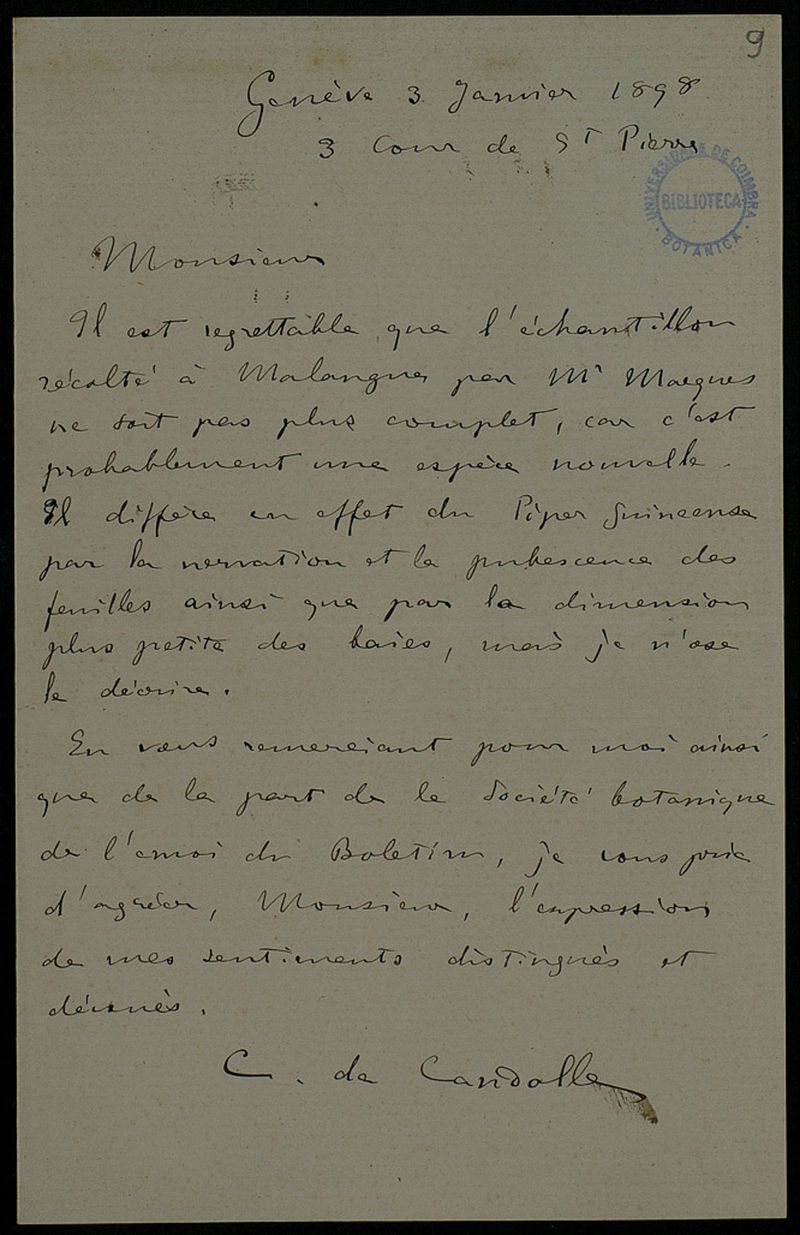 9
Genève 3 Janvier 1898
3 Cour de St Pierre
UNIVERSIDADE DE COIMBRA
BIBLIOTECA
BOTANICA
Monsieur
Il est regrettable que l'échantillon
récolté à Malangue par Mr Marques
ne soit pas plus complet, car c'est
probablement une espèce nouvelle.
Il diffère en effet du Piper guineense
par la nervation et la pubescence des
feuilles ainsi que par la dimension
plus petite des baies, mais je n'ose
le décrire.
En vous remerciant pour moi ainsi
que de la part de la Société botanique
de l'envoi du Boletim, je vous prie
d'agréer, Monsieur, l'expression
de mes sentiments distingués et
dévoués.
C. de Candolle